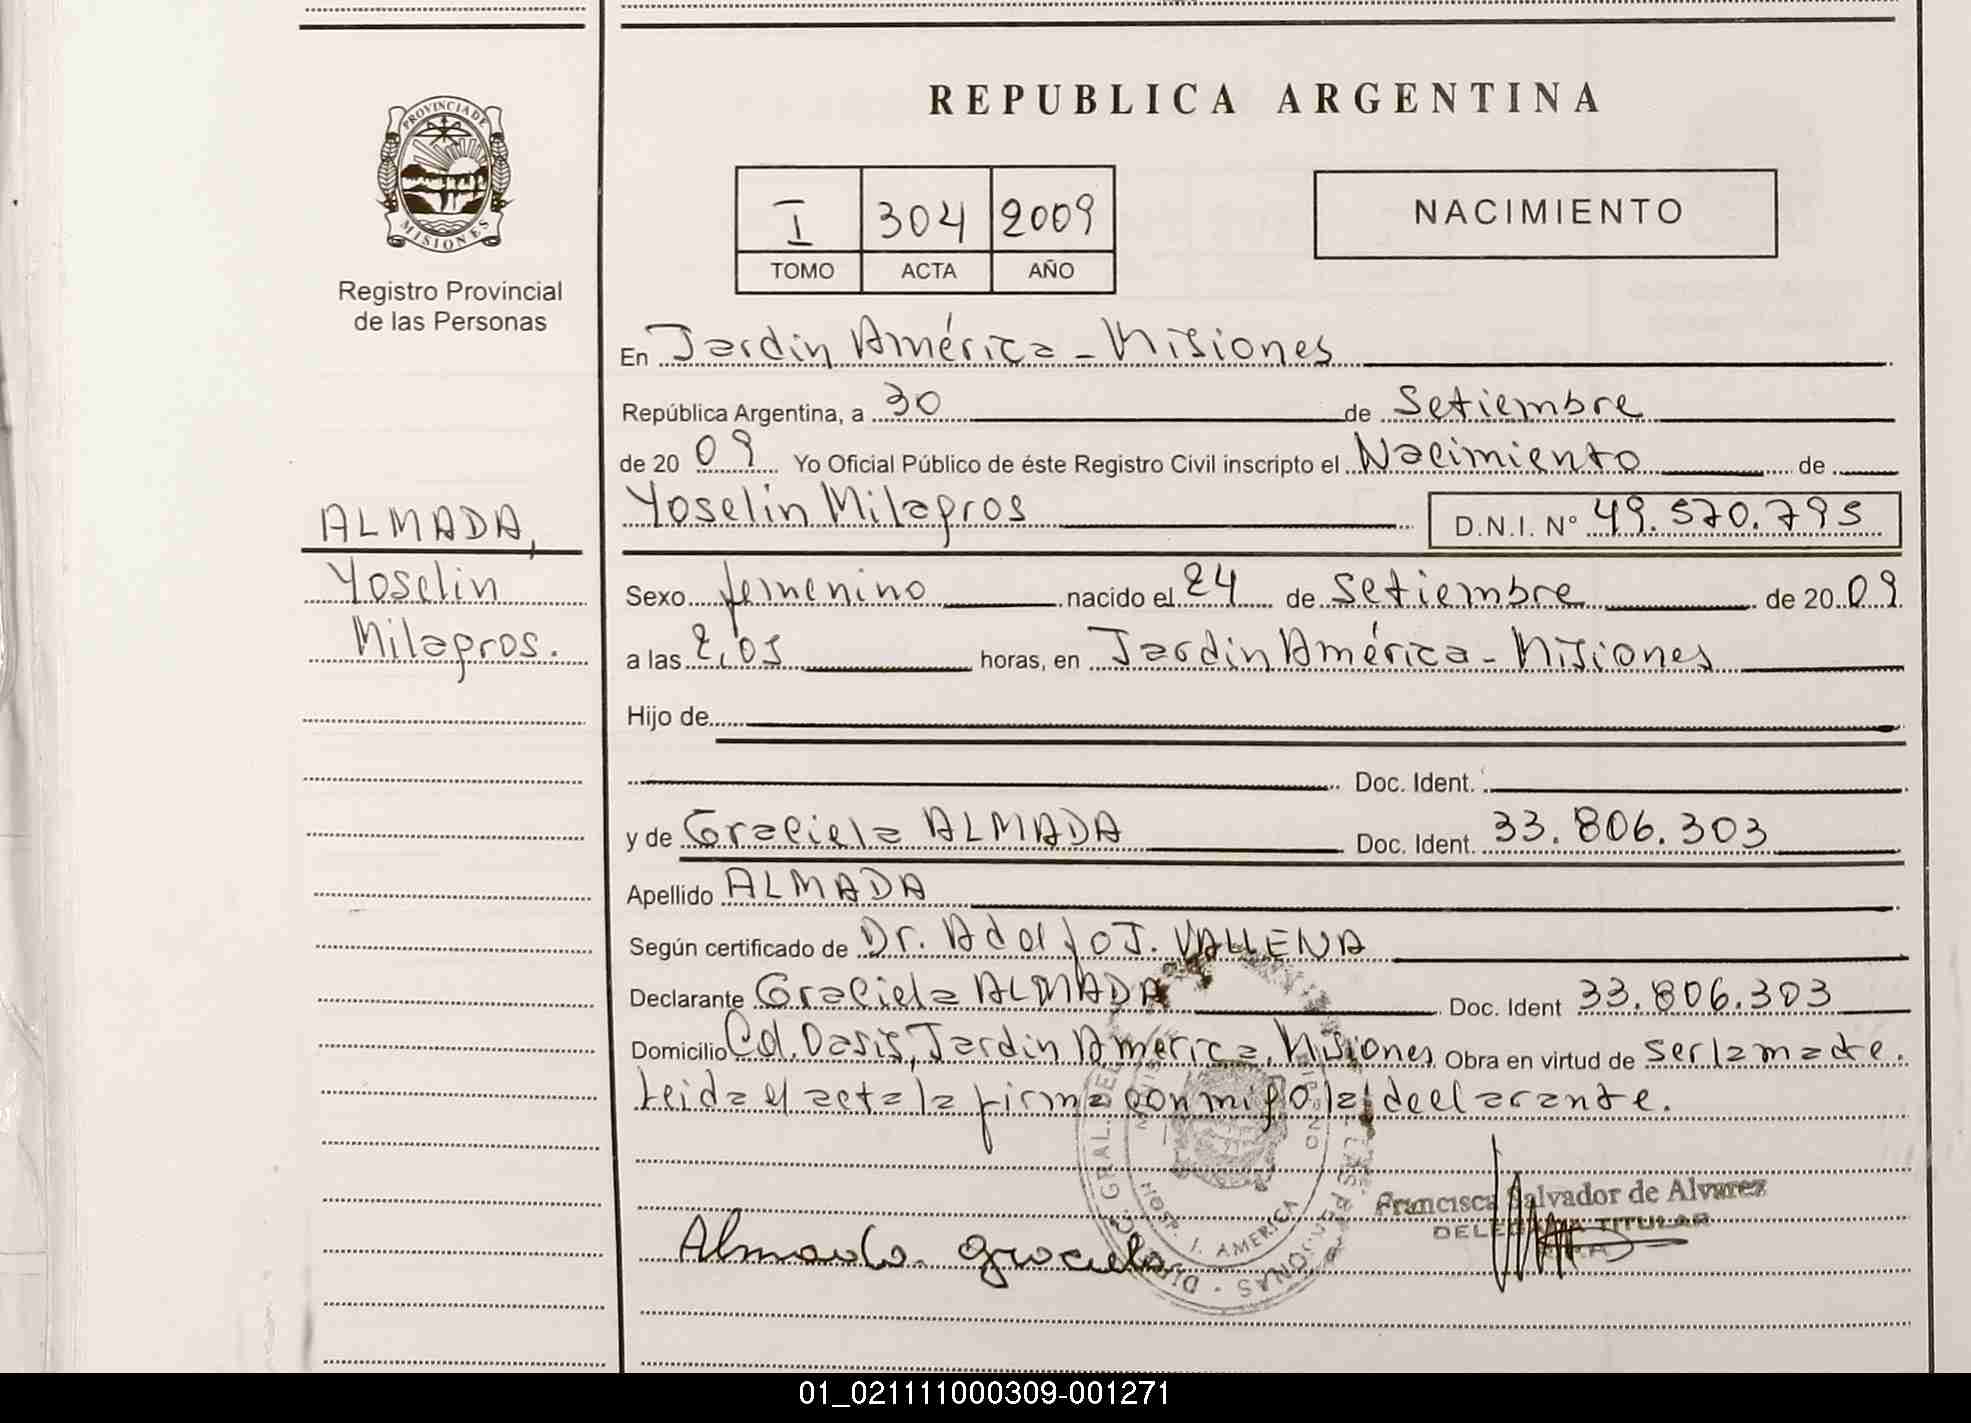 REPUBLICA ARGENTINA
PROVINCIA DE
MISIONES
Registro Provincial
de las Personas
I 304 2009
TOMO ACTA AÑO
NACIMIENTO
En Jardin América - Misiones
República Argentina, a 30 de Setiembre
de 20 09 Yo Oficial Público de éste Registro Civil inscripto el Nacimiento de
Yoselin Milagros D.N.I. Nº 49.570.795
ALMADA,
Yoselin
Milagros.
Sexo femenino nacido el 24 de Setiembre de 20 09
a las 2,05 horas, en Jardin América - Misiones
Hijo de
Doc. Ident.
y de Graciela ALMADA Doc. Ident. 33.806.303
Apellido ALMADA
Según certificado de Dr. Adolfo J. VALLENA
Declarante Graciela ALMADA Doc. Ident 33.806.303
Domicilio Cd. Oasis, Jardin America, Misiones Obra en virtud de ser la madre.
Leida el acta la firma con migo la declarante.
HOSP. J. AMERICA
Francisca Salvador de Alvarez
TITULAR
Almada graciela
01_021111000309-001271